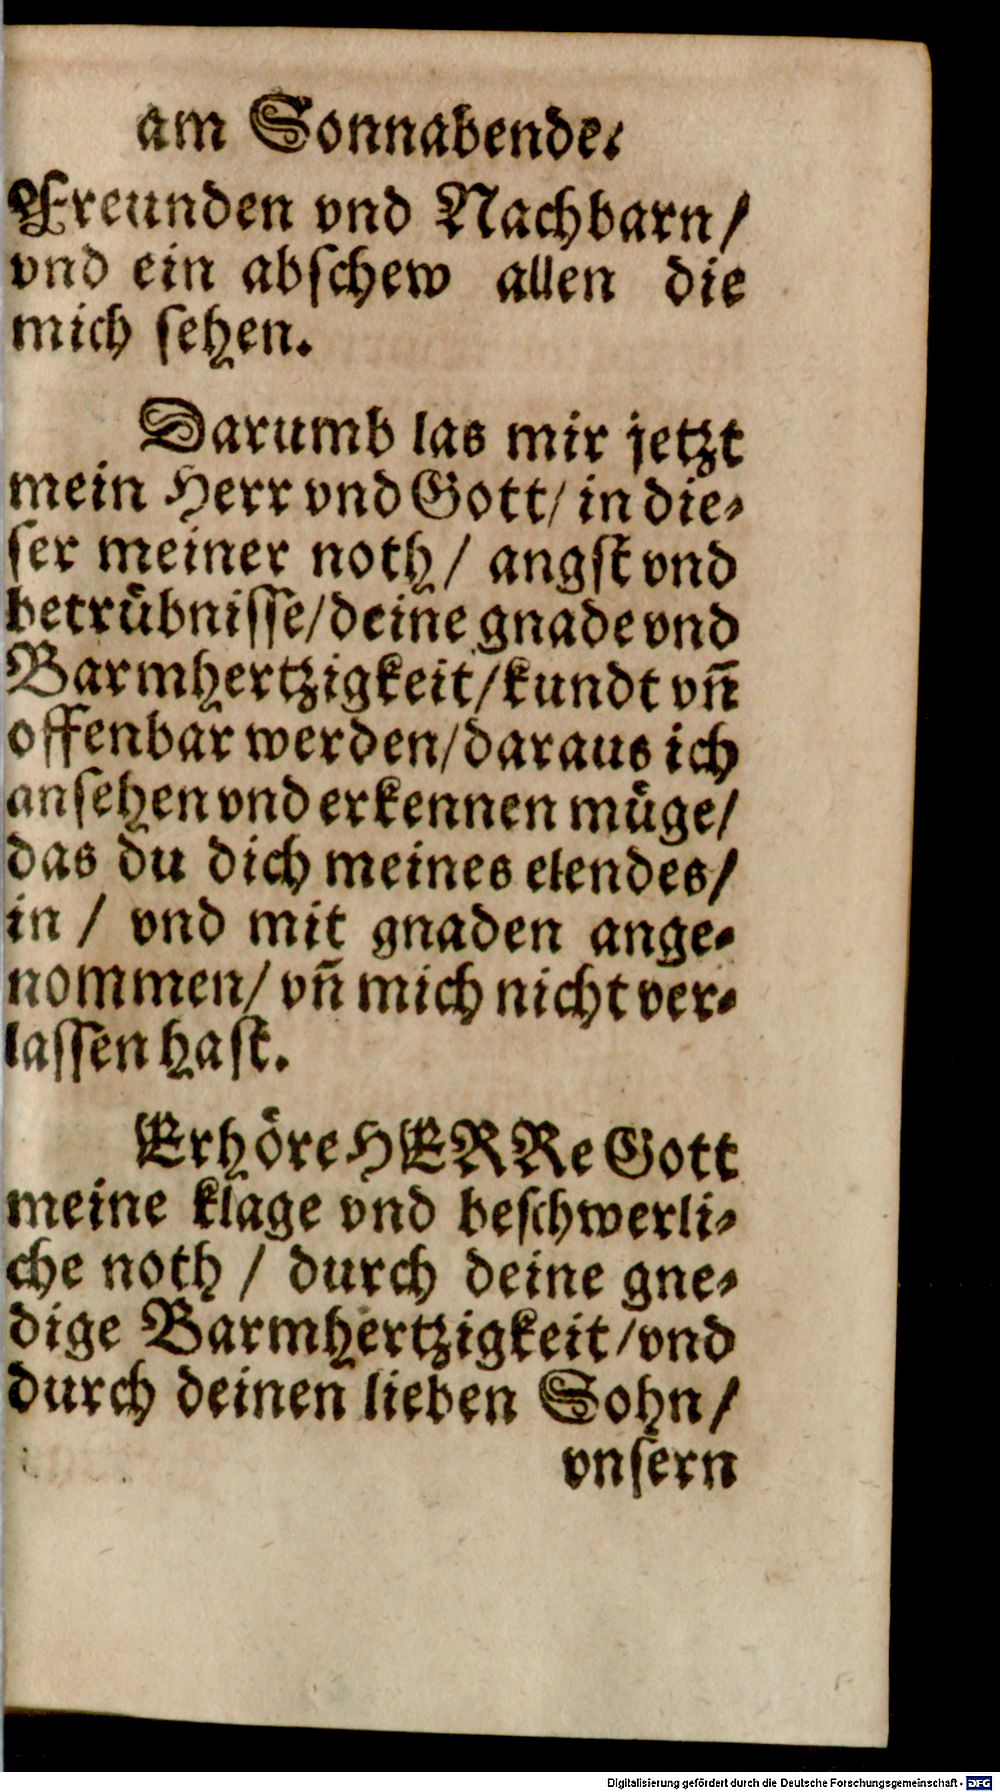 am Sonnabende.
Freunden vnd Nachbarn/
vnd ein abſchew allen die
mich ſehen.
Darumb las mir jetzt
mein Herr vnd Gott/ in die⸗
ſer meiner noth/ angſt vnd
betrübniſſe/deine gnade vnd
Barmhertzigkeit/kundt vñ
offenbar werden/daraus ich
anſehen vnd erkennen müge/
das du dich meines elendes/
in / vnd mit gnaden ange⸗
nommen/ vñ mich nicht ver⸗
laſſen haſt.
Erhöre HERRe Gott
meine klage vnd beſchwerli⸗
che noth / durch deine gne⸗
dige Barmhertzigkeit/vnd
durch deinen lieben Sohn/
vnſern
Digitalisierung gefördert durch die Deutsche Forschungsgemeinschaft - DFG